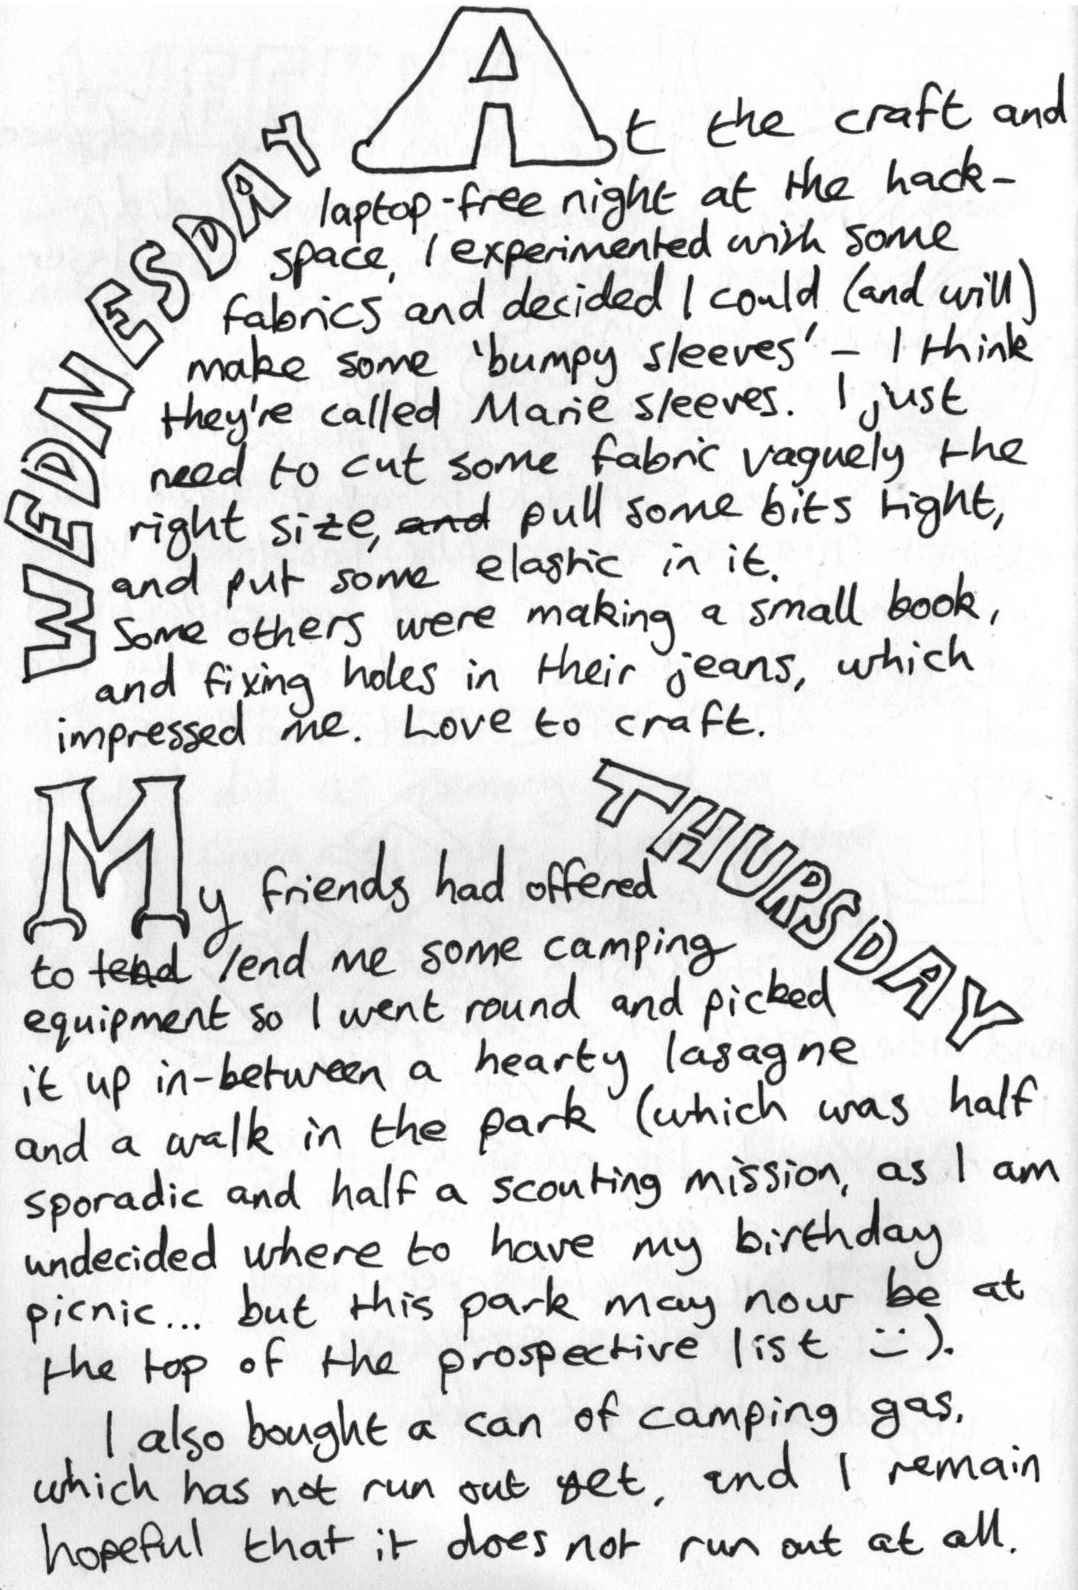 WEDNESDAY
At the craft and
laptop-free night at the hack-
space, I experimented with some
fabrics and decided I could (and will)
make some 'bumpy sleeves' – I think
they're called Marie sleeves. I just
need to cut some fabric vaguely the
right size, ~~and~~ pull some bits tight,
and put some elastic in it.
Some others were making a small book,
and fixing holes in their jeans, which
impressed me. Love to craft.
THURSDAY
My friends had offered
to ~~tend~~ lend me some camping
equipment so I went round and picked
it up in-between a hearty lasagne
and a walk in the park (which was half
sporadic and half a scouting mission, as I am
undecided where to have my birthday
picnic... but this park may now be at
the top of the prospective list :-).
I also bought a can of camping gas,
which has not run out yet, and I remain
hopeful that it does not run out at all.